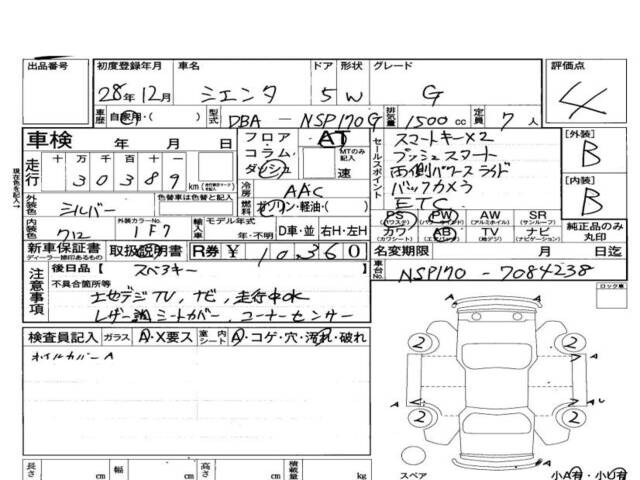 出品番号 初度登録年月 車名 ドア 形状 グレード 評価点
28年12月 シエンタ 5 W G 4
車歴 自家用・( ) 型式 DBA-NSP170G 排気量 1500cc 定員 7人
車検 年 月 日 フロア AT
コラム MTのみ記入
ダッシュ 速
セールスポイント
スマートキー×2
プッシュスマート
両側パワースライド
バックカメラ
ETC
[外装] B
[内装] B
走行 十万 万 千 百 十 一
30389 km
冷房 AAC
燃料 ガソリン・軽油・( )
現在色を記入→
外装色 シルバー 色替車は色替と記入
内装色 712 外装カラーNo. 1F7 輸入車 モデル年式 年・不明 D車・並 右H・左H
PS (パワステ) PW AW (アルミホイル) SR (サンルーフ)
カワ (カワシート) AB TV (地デジ) ナビ (ナビゲーション)
純正品のみ丸印
新車保証書 取扱説明書 R券 ¥10,360
ディーラー捺印あるもの
名変期限 月 日迄
車台No. NSP170-7084238
注意事項 後日品 スペアキー
不具合箇所等
土地デジTV、ナビ、走行中OK
レザー調シートカバー、コーナーセンサー
ロック車
検査員記入 ガラス A・X要ス 室内シート A・コゲ・穴・汚れ・破れ
ホイルカバーA
2 2
A A
A
2 2
スペア
A
小A有・小U有
長さ cm 幅 cm 高さ cm 積載量 kg